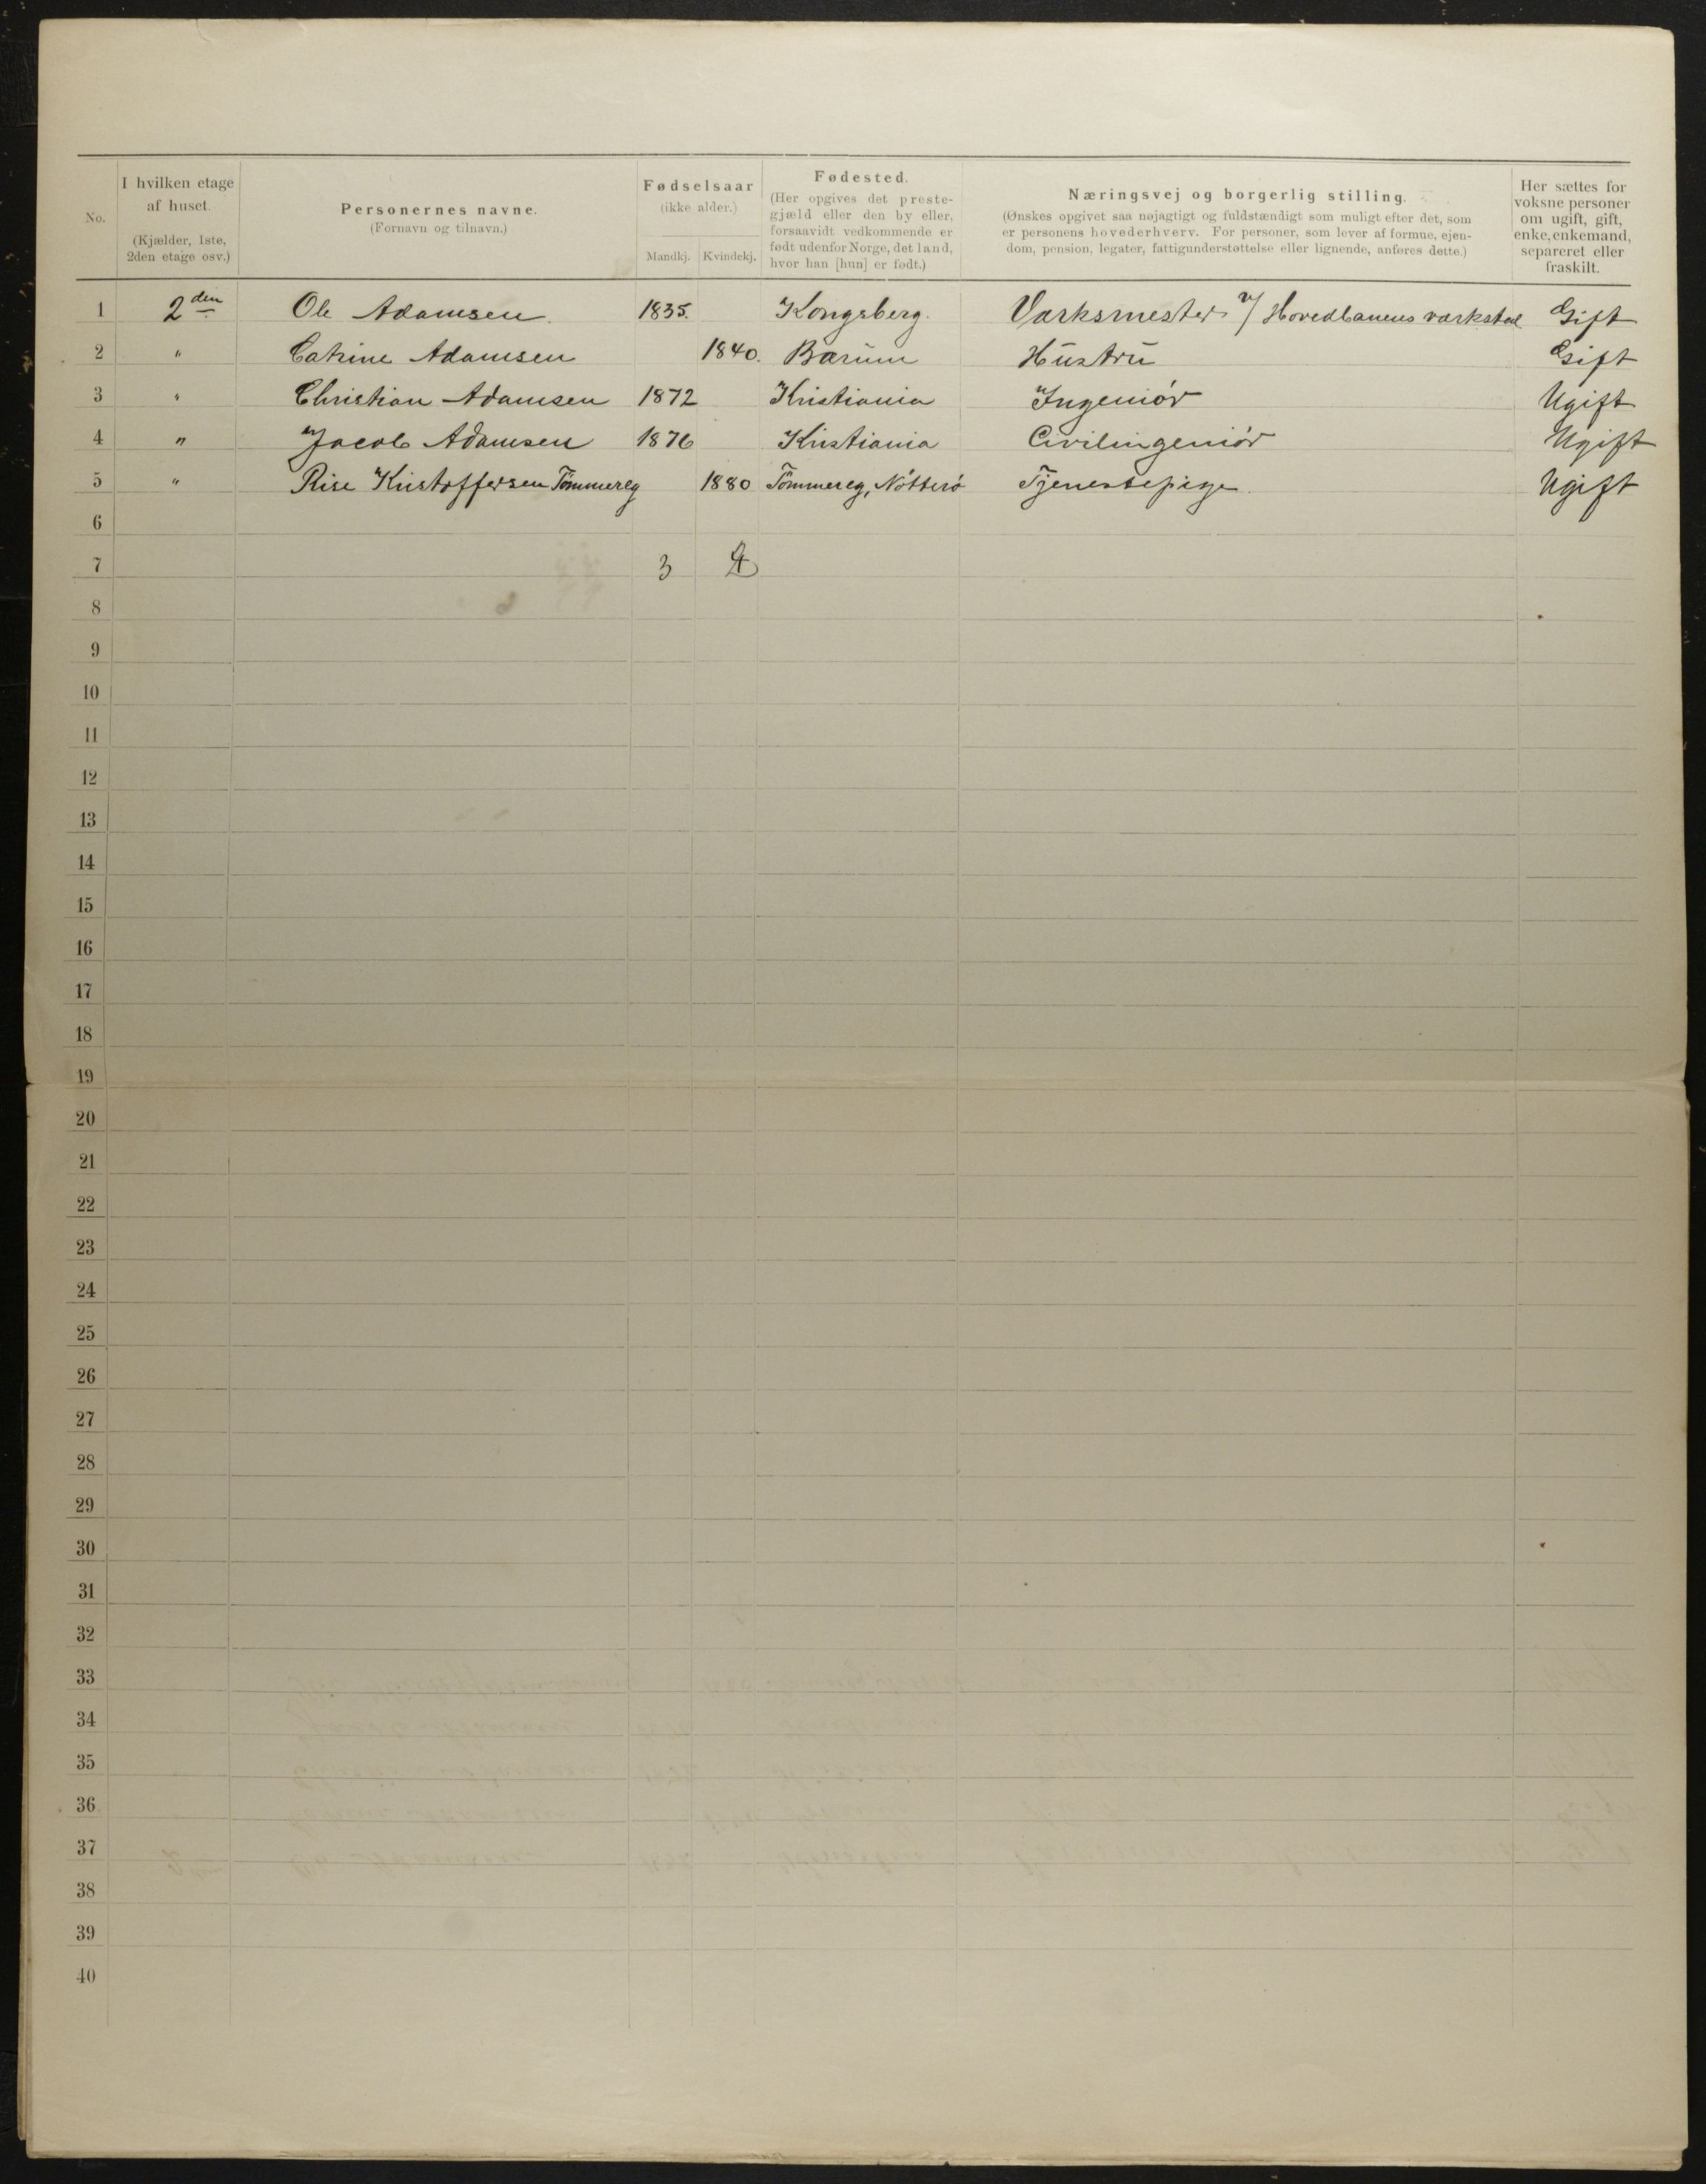 No.
I hvilken etage
af huset.
(Kjælder, 1ste,
2den etage osv.)
Personernes navne.
(Fornavn og tilnavn.)
Fødselsaar
(ikke alder.)
Mandkj. Kvindekj.
Fødested.
(Her opgives det preste-
gjæld eller den by eller,
forsaavidt vedkommende er
født udenfor Norge, det land,
hvor han [hun] er født.)
Næringsvej og borgerlig stilling.
(Ønskes opgivet saa nøjagtigt og fuldstændigt som muligt efter det, som
er personens hovederhverv. For personer, som lever af formue, ejen-
dom, pension, legater, fattigunderstøttelse eller lignende, anføres dette.)
Her sættes for
voksne personer
om ugift, gift,
enke, enkemand,
separeret eller
fraskilt.
1 2den Ole Adamsen. 1835. Kongsberg. Værksmester v/ Hovedbanens værksted Gift
2 " Catrine Adamsen 1840. Bærum Hustru Gift
3 " Christian Adamsen 1872 Kristiania Ingeniör Ugift
4 " Jacob Adamsen 1876 Kristiania Civilingeniör Ugift
5 " Rise Kristoffersen Tömmereg 1880 Tömmereg, Nötterö Tjenestepige. Ugift
6
7 3
8
9
10
11
12
13
14
15
16
17
18
19
20
21
22
23
24
25
26
27
28
29
30
31
32
33
34
35
36
37
38
39
40